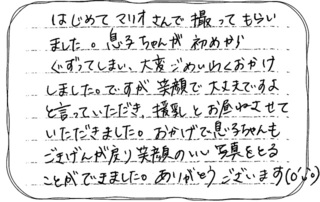 はじめて マリオさんで 撮ってもらい
ました。息子ちゃんが 初めから
ぐずってしまい、大変ごめいわくおかけ
しました。ですが 笑顔で 大丈夫ですよ
と言っていただき、授乳と お昼ねさせて
いただきました。おかげで息子ちゃんも
ごきげんが戻り 笑顔の いい 写真をとる
ことができました。ありがとう ございます(o^^o)